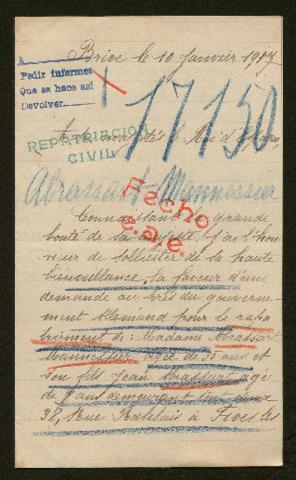 Brive le 10 Janvier 1917
A
Pedir informes
Que se hace así
Devolver
17150
A sa majesté le Roi d'Espagne,
REPATRIACION
CIVIL
Abrassart-Mannessier
Fecho
Connaissant la grande
bonté de sa majesté j'ai l'hon
neur de solliciter de la haute
bienveillance, la faveur d'une
demande auprès du gouverne-
ment Allemand pour le rapa
triement de: Madame Abrassart
Mannessier agée de 33 ans et
son fils Jean Abrassart agée
de ans demeurant tous deux
38, Rue Rabelais à Fives les